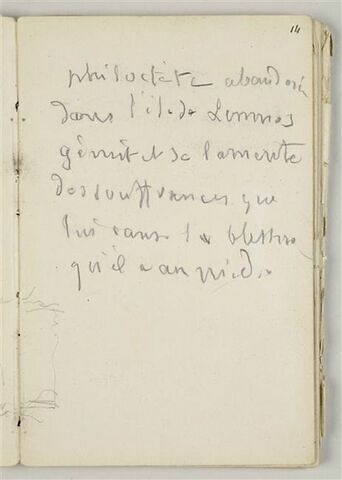 14
philoctète abandonné
dans l'île de Lemnos
gémit et se lamente
des souffrances que
lui cause la blessure
qu'il a au pied.